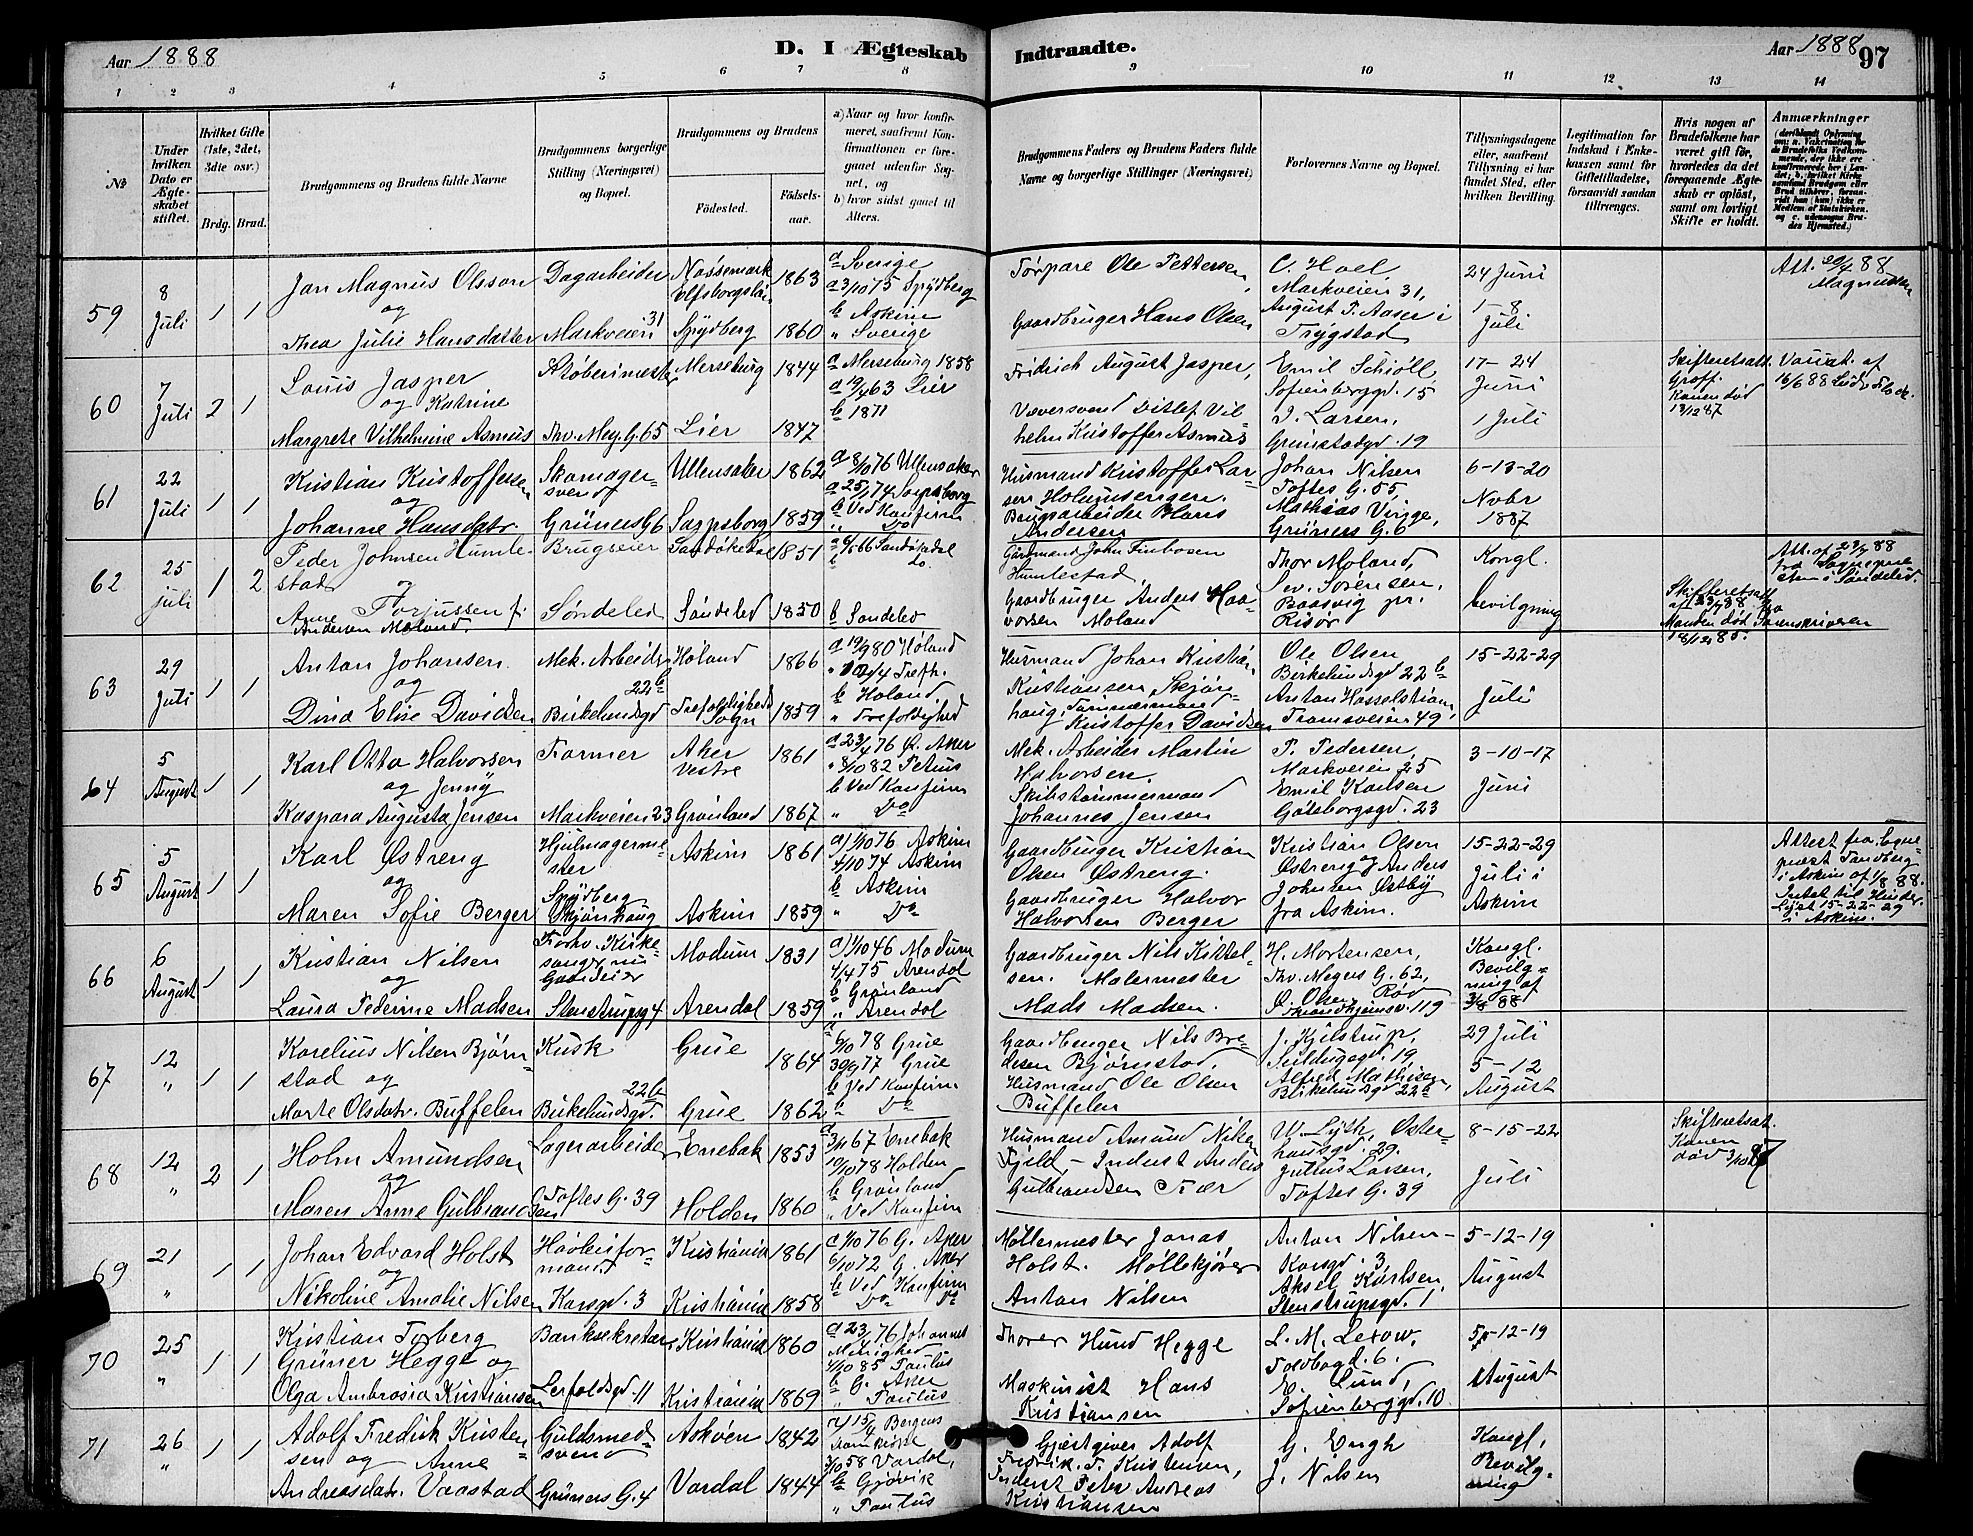 Aar 1888
D. I Ægteskab
Indtraadte.
Aar 1888
97
1 2 3 4 5 6 7 8 9 10 11 12 13 14
№
Under hvilken Dato er Ægteskabet stiftet.
Hvilket Gifte (1ste, 2det, 3die osv.)
Brdg. Brud.
Brudgommens og Brudens fulde Navne
Brudgommens borgerlige Stilling (Næringsvei) og Bopæl.
Brudgommens og Brudens
Födested.
Födselsaar.
a) Naar og hvor konfirmeret, saafremt Konfirmationen er foregaaet udenfor Sognet, og
b) hvor sidst gaaet til Alters.
Brudgommens Faders og Brudens Faders fulde Navne og borgerlige Stillinger (Næringsvei)
Forlovernes Navne og Bopæl.
Tillysningsdagene eller, saafremt Tillysning ei har fundet Sted, efter hvilken Bevilling.
Legitimation for Indskud i Enkekassen samt for Giftetilladelse, forsaavidt saadan tiltrænges.
Hvis nogen af Brudefolkene har været gift för, hvorledes da det foregaaende Ægteskab er oplöst, samt om lovligt Skifte er holdt.
Anmærkninger
59
8 Juli
1 1
Jan Magnus Olsson
og
Thea Julie Hansdatter
Dagarbeider
Markveien 31
Nössemark Elfsborgslän
Spydberg
1863
1860
a Sverige
a 3/10 75 Spydberg
b Askim
" Sverige
Torpare Ole Pettersen,
Gaardbruger Hans Olsen
C. Hoel
Markveien 31,
August T. Aaser i
Trygstad
24 Juni
1-8
Juli
Att. 20/4 88
60
7 Juli
2 1
Louis Jasper
og Katrine
Margrete Vilhelmine Asmus
Støberimester
Thv. Mey. G. 65
Merseburg
Lier
1844
1847
a Merseburg 1858
a 19/4 63 Lier
b 1871
Fridrich August Jasper,
Væversvend Ditlef Vilhelm Kristoffer Asmus
Emil Schiöll
Sofienberggd. 15
J. Larsen,
Grimstadgd. 19
17-24
Juni
1 Juli
Skifteretsatt.
Konen död
13/12 87
61
22 Juli
1 1
Kristian Kristoffersen
og
Johanne Hansdatr.
Skomagersvend
Grüners G 6
Ullensaker
Sarpsborg
1862
1859
a 8/10 76 Ullensaker
a 25/1 74 Sarpsborg
b Ved Konfirm
" Do
Husmand Kristoffer Larsen Holmsengen.
Brugsarbeider Hans
Andersen
Johan Nilsen
Toftes G. 55,
Mathias Vinge,
Grüners G. 6
6-13-20
Novbr
1887
62
25 juli
1 2
Peder Johnsen Humlestad
og
Anne Torjussen f.
Andersen Moland.
Brugseier
Søndeled
Sandökedal
Söndeled
1851
1850
b Søndeled
Gårdmand John Finbosen
Humlestad
Gaardbruger Anders Haavorsen Moland
Thor Moland,
Sev. Sörensen,
Baasvig pr.
Risör
Kongl.
bevilgning
Skifteretsatt.
af 23/7 88 fra
Manden död Sorenskriveren
18/12 85.
Att. af 23/7 88
fra Sognepresten i Söndeled.
63
29 Juli
1 1
Anton Johansen
og
Dina Elise Davidsen
Mek. Arbeider
22b
Birkelundsgd
Høland
Trefoldigheds Sogn
1866
1859
a 19/9 80 Høland
b Høland
" Trefoldighed
Husmand Johan Kristian Kristiansen Skjönhaug,
Tömmermand
Kristoffer Davidsen
Ole Olsen
Birkelundsgd 22b
Anton Hasselstrøm,
Tromsveien 49
15-22-29
Juli
64
5 August
1 1
Karl Otto Halvorsen
og Jenny
Kaspara Augusta Jensen
Former
Markveien 23
Aker Vestre
Grønland
1861
1867
a 23/4 76 V. Aker
" 8/10 82 Petrus
b Ved Konfirm
" Do
Mek. Arbeider Martin
Halvorsen
Skibstömmermand
Johannes Jensen
P. Pedersen
Markveien 25
Emil Karlsen
Göteborgsgd. 23
3-10-17
Juni
65
5 August
1 1
Karl Østreng
og
Maren Sofie Berger
Hjulmagermester
Spydberg
Skjönhaug
Askim
Askim
1861
1859
a 1/10 76 Askim
4/10 74 Askim
b Askim
" Do
Gaardbruger Kristian
Olsen Østreng.
Gaardbruger Halvor
Halvorsen Berger
Kristian Olsen
Østreng og Anders
Johnsen Østby
fra Askim.
15-22-29
Juli i
Askim
Attest fra Sognepræst Sandberg
i Askim af 1/8 88.
Intet til Hinder.
Lyst 15-22-29
i Askim.
66
6 August
1 1
Kristian Nilsen
og
Laura Pederine Madsen
Forhv. Kirkesanger nu
Gaardeier
Stenstrupg 4
Modum
Arendal
1831
1859
a 11/10 46 Modum
4/4 75 Arendal
b Grønland
" Arendal
Gaardbruger Nils Kittelsen. Malermester
Mads Madsen.
H. Mortensen,
Thv. Meyers G. 62,
O. Olsen Rød
Trondhjemsv. 119
Kongl.
Bevilgning af
3/8 88
67
12 "
1 1
Karelius Nilsen Bjørnstad og
Marte Olsdatr. Buffelen
Kusk
22b
Birkelundsgd.
Grue
Grue
1864
1862
a 6/10 78 Grue
30/9 77 Grue
b Ved Konfirm
b Do
Gaardbruger Nils Bredesen Bjørnstad,
Husmand Ole Olsen
Buffelen
J. Hjelstrup,
Seildugsgd. 19,
Alfred Mathisen,
Birkelundsgd 22b
29 Juli
5-12
August
68
12 "
2 1
Holm Amundsen
og
Maren Anne Gulbrandsen
Lagerarbeider
Toftes G. 39
Enebak
Holden
1853
1860
a 3/11 67 Enebak
19/10 78 Holden
b Grønland
" Ved Konfirm
Husmand Amund Nilsen
Fjeld - Inderst Anders
Gulbrandsen Fær
W. Lyth, Osterhausgd. 29.
Julius Larsen,
Toftes G. 39
8-15-22
Juli
Skifteretsat.
Konen
död 3/10 87
69
21 "
1 1
Johan Edvard Holst
og
Nikoline Amalie Nilsen
Høvleriformand
Korsgd. 3
Kristiania
Kristiania
1861
1858
a 1/10 76 G. Aker
6/10 72 G. Aker
b Ved Konfirm
" Do Do
Møllermester Jonas
Holst. Møllekjører
Anton Nilsen
Anton Nilsen -
Korsgd. 3
Aksel Karlsen,
Stenstrupsgd. 1
5-12-19
August
70
25 "
1 1
Kristian Torberg
Grüner Hegge og
Olga Ambrosia Kristiansen
Banksekretær
Lerfoldsgd. 11
Kristiania
Kristiania
1860
1869
a 23/4 76 Johannes
Menighed
4/10 85 Paulus
b G. Aker
" Paulus
Thorer Hund Hegge
Maskinist Hans
Kristiansen
L. M. Lexow,
Toldbogd. 6.
E. Lund,
Sofienberggd. 10
5-12-19
August
71
26 "
1 1
Adolf Fredrik Kristensen og Anne
Andreasdatr. Vaastad
Guldsmedsvend
Grüners G. 4
Askvøll
Vardal
1842
1844
Bergens
Domkirke
3/10 58 Vardal,
b Gjøvik
" Paulus
Gjæstgiver Adolf
Fredrik T. Kristensen,
Inderst Peter Andreas
Kristiansen
G. Engh
J. Nilsen
Kongl.
Bevilgning